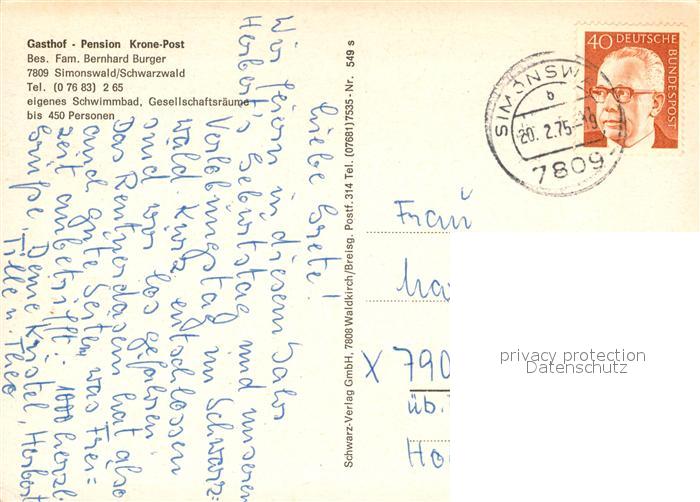 Gasthof - Pension Krone-Post
Bes. Fam. Bernhard Burger
7809 Simonswald/Schwarzwald
Tel. (0 76 83) 2 65
eigenes Schwimmbad, Gesellschaftsräume
bis 450 Personen
Liebe Grete!
Wir feiern in diesem Jahr
Herbert's Geburtstag und unseren
Verlobungstag im Schwarz-
wald. Kurz entschlossen
sind wir los gefahren.
Das Rentnerdasein hat also
auch gute Seiten, was Frei=
zeit anbetrifft. 1000 herzl.
Grüße, Deine Kristel, Herbert
u. Theo
Schwarz-Verlag GmbH, 7808 Waldkirch/Breisg. Postf. 314 Tel. (07681) 7535 - Nr. 549 s
40 DEUTSCHE
BUNDESPOST
SIMONSW
b
20. 2.75-19
7809
Frau
X 790
üb.
privacy protection
Datenschutz